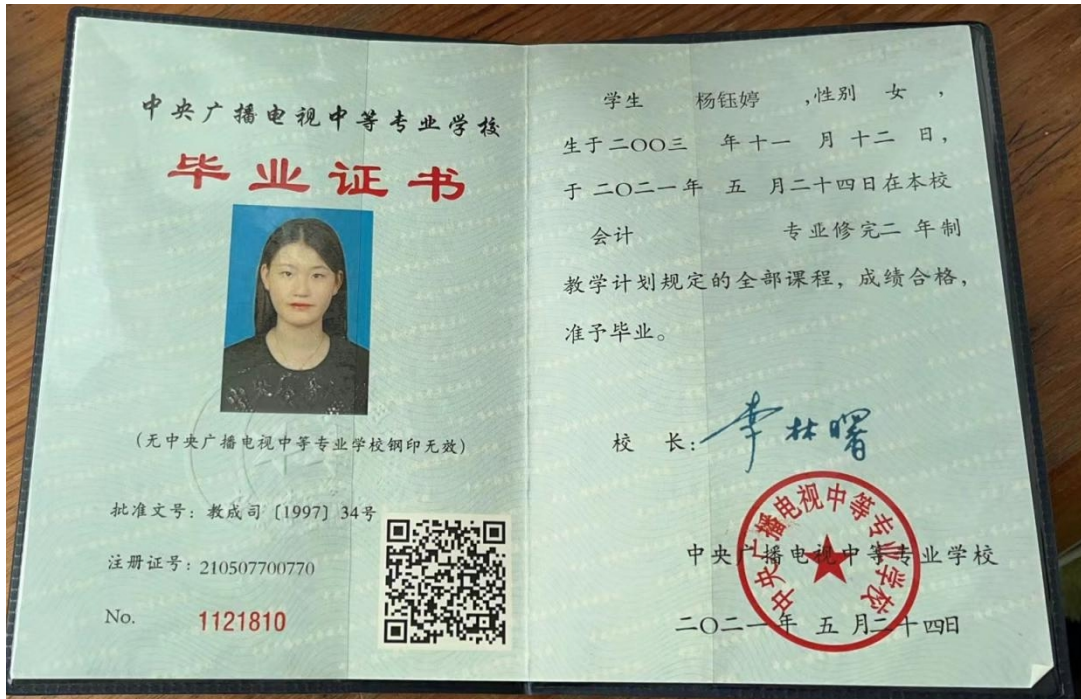 中央广播电视中等专业学校
毕业证书
(无中央广播电视中等专业学校钢印无效)
批准文号：教成司〔1997〕34号
注册证号：210507700770
No. 1121810
学生 杨钰婷 ，性别 女 ，
生于二〇〇三 年十一 月 十二 日，
于 二〇二一年 五 月二十四日在本校
会计 专业修完二 年制
教学计划规定的全部课程，成绩合格，
准予毕业。
校 长：李林曙
中央广播电视中等专业学校
中央广播电视中等专业学校
二〇二一年 五 月二十四日